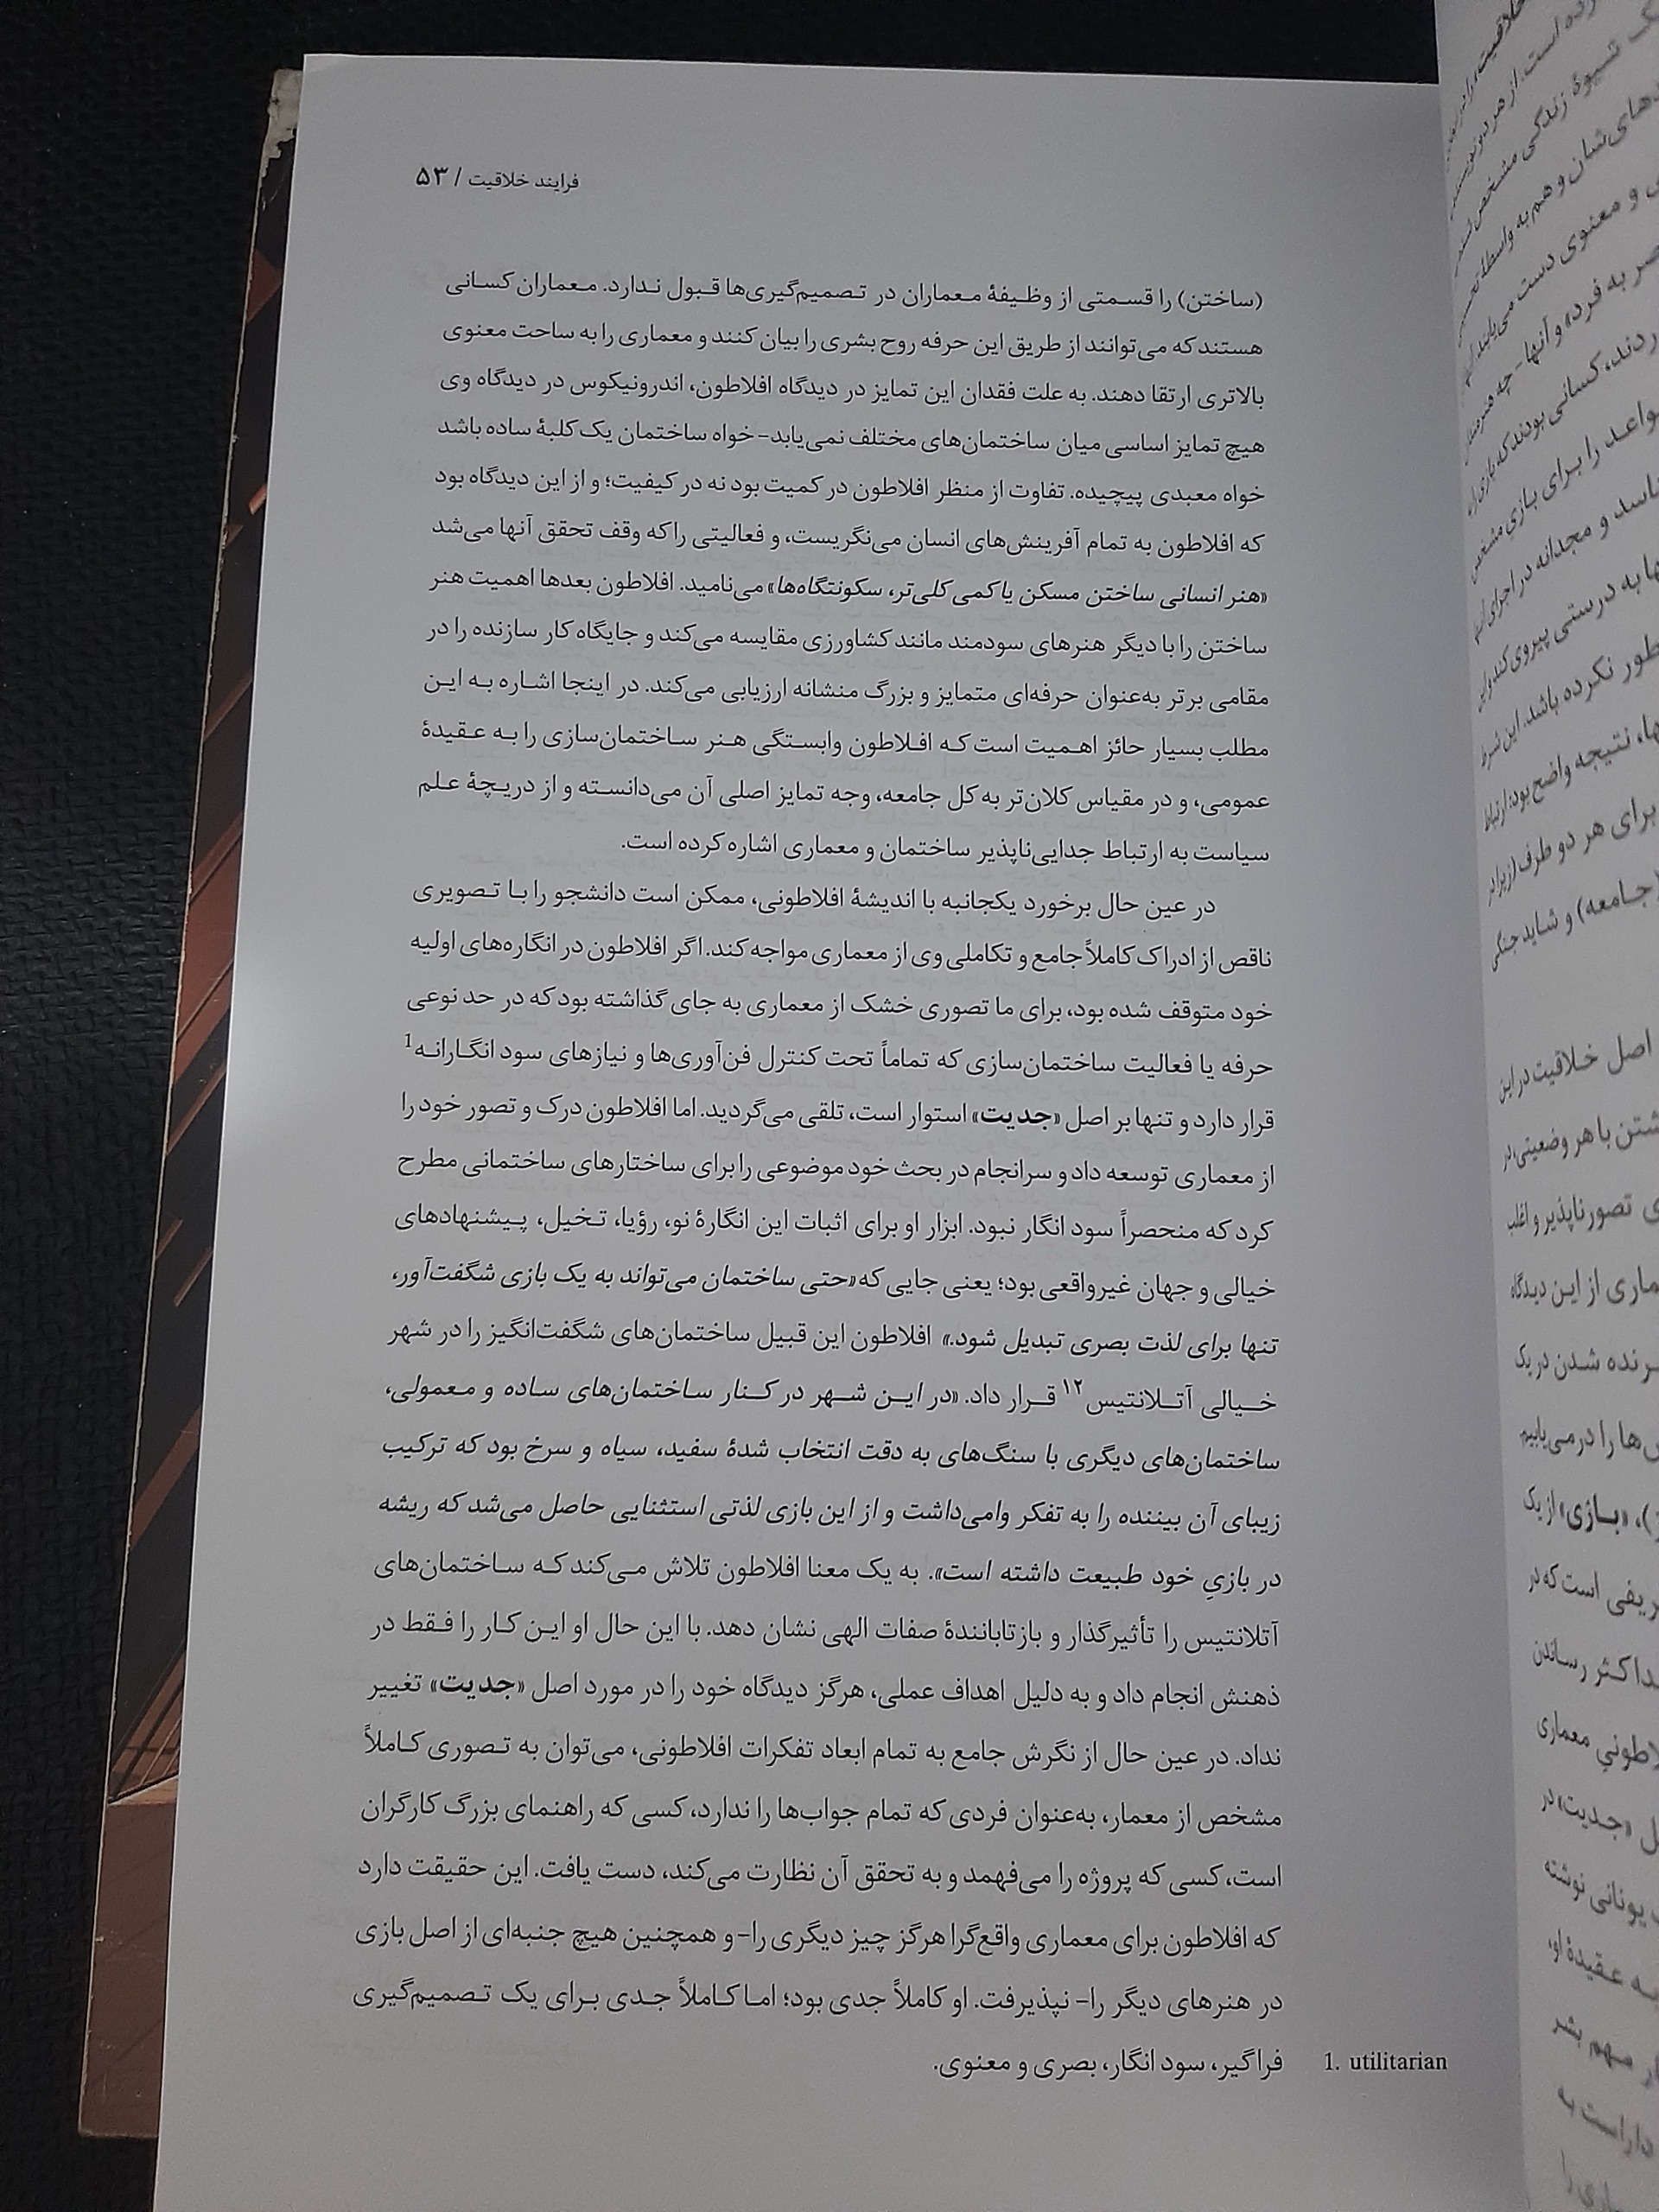 فرایند خلاقیت / ۵۳
(ساختن) را قسمتی از وظیفهٔ معماران در تصمیم‌گیری‌ها قبول ندارد. معماران کسانی
هستند که می‌توانند از طریق این حرفه روح بشری را بیان کنند و معماری را به ساحت معنوی
بالاتری ارتقا دهند. به علت فقدان این تمایز در دیدگاه افلاطون، اندرونیکوس در دیدگاه وی
هیچ تمایز اساسی میان ساختمان‌های مختلف نمی‌یابد-خواه ساختمان یک کلبهٔ ساده باشد
خواه معبدی پیچیده. تفاوت از منظر افلاطون در کمیت بود نه در کیفیت؛ و از این دیدگاه بود
که افلاطون به تمام آفرینش‌های انسان می‌نگریست، و فعالیتی را که وقف تحقق آنها می‌شد
«هنر انسانی ساختن مسکن یا کمی کلی‌تر، سکونتگاه‌ها» می‌نامید. افلاطون بعدها اهمیت هنر
ساختن را با دیگر هنرهای سودمند مانند کشاورزی مقایسه می‌کند و جایگاه کار سازنده را در
مقامی برتر به‌عنوان حرفه‌ای متمایز و بزرگ منشانه ارزیابی می‌کند. در اینجا اشاره به این
مطلب بسیار حائز اهمیت است که افلاطون وابستگی هنر ساختمان‌سازی را به عقیدهٔ
عمومی، و در مقیاس کلان‌تر به کل جامعه، وجه تمایز اصلی آن می‌دانسته و از دریچهٔ علم
سیاست به ارتباط جدایی‌ناپذیر ساختمان و معماری اشاره کرده است.
در عین حال برخورد یکجانبه با اندیشهٔ افلاطونی، ممکن است دانشجو را با تصویری
ناقص از ادراک کاملاً جامع و تکاملی وی از معماری مواجه کند. اگر افلاطون در انگاره‌های اولیه
خود متوقف شده بود، برای ما تصوری خشک از معماری به جای گذاشته بود که در حد نوعی
حرفه یا فعالیت ساختمان‌سازی که تماماً تحت کنترل فن‌آوری‌ها و نیازهای سود انگارانه1
قرار دارد و تنها بر اصل «جدیت» استوار است، تلقی می‌گردید. اما افلاطون درک و تصور خود را
از معماری توسعه داد و سرانجام در بحث خود موضوعی را برای ساختارهای ساختمانی مطرح
کرد که منحصراً سود انگار نبود. ابزار او برای اثبات این انگارهٔ نو، رؤیا، تخیل، پیشنهادهای
خیالی و جهان غیرواقعی بود؛ یعنی جایی که «حتی ساختمان می‌تواند به یک بازی شگفت‌آور،
تنها برای لذت بصری تبدیل شود.» افلاطون این قبیل ساختمان‌های شگفت‌انگیز را در شهر
خیالی آتلانتیس۱۲ قرار داد. «در این شهر در کنار ساختمان‌های ساده و معمولی،
ساختمان‌های دیگری با سنگ‌های به دقت انتخاب شدهٔ سفید، سیاه و سرخ بود که ترکیب
زیبای آن بیننده را به تفکر وامی‌داشت و از این بازی لذتی استثنایی حاصل می‌شد که ریشه
در بازیِ خود طبیعت داشته است». به یک معنا افلاطون تلاش می‌کند که ساختمان‌های
آتلانتیس را تأثیرگذار و بازتابانندهٔ صفات الهی نشان دهد. با این حال او این کار را فقط در
ذهنش انجام داد و به دلیل اهداف عملی، هرگز دیدگاه خود را در مورد اصل «جدیت» تغییر
نداد. در عین حال از نگرش جامع به تمام ابعاد تفکرات افلاطونی، می‌توان به تصوری کاملاً
مشخص از معمار، به‌عنوان فردی که تمام جواب‌ها را ندارد، کسی که راهنمای بزرگ کارگران
است، کسی که پروژه را می‌فهمد و به تحقق آن نظارت می‌کند، دست یافت. این حقیقت دارد
که افلاطون برای معماری واقع‌گرا هرگز چیز دیگری را- و همچنین هیچ جنبه‌ای از اصل بازی
در هنرهای دیگر را- نپذیرفت. او کاملاً جدی بود؛ اما کاملاً جدی برای یک تصمیم‌گیری
فراگیر، سود انگار، بصری و معنوی.
1. utilitarian
خلاقیت را در
شیوهٔ زندگی مشخص
و معنوی دست می‌یابند
ردند، کسانی بودند که بازی را
واعد را برای بازی مشخص
ها به درستی پیروی کند و این
طور نکرده باشد. این شرط
ها، نتیجه واضح بود: ارتباط
برای هر دو طرف (زیرا در
(جامعه) و شاید جنگی
اصل خلاقیت در این
شتن با هر وضعیتی، در
ی تصورناپذیر و اغلب
ماری از این دیدگاه
رنده شدن در یک
ها را درمی‌یابیم
)، «بازی» از یک
ریفی است که در
داکثر رساندن
لاطونیِ معماری
ل «جدیت» در
یونانی نوشته
به عقیدهٔ او،
ر مهم بشر
داراست به